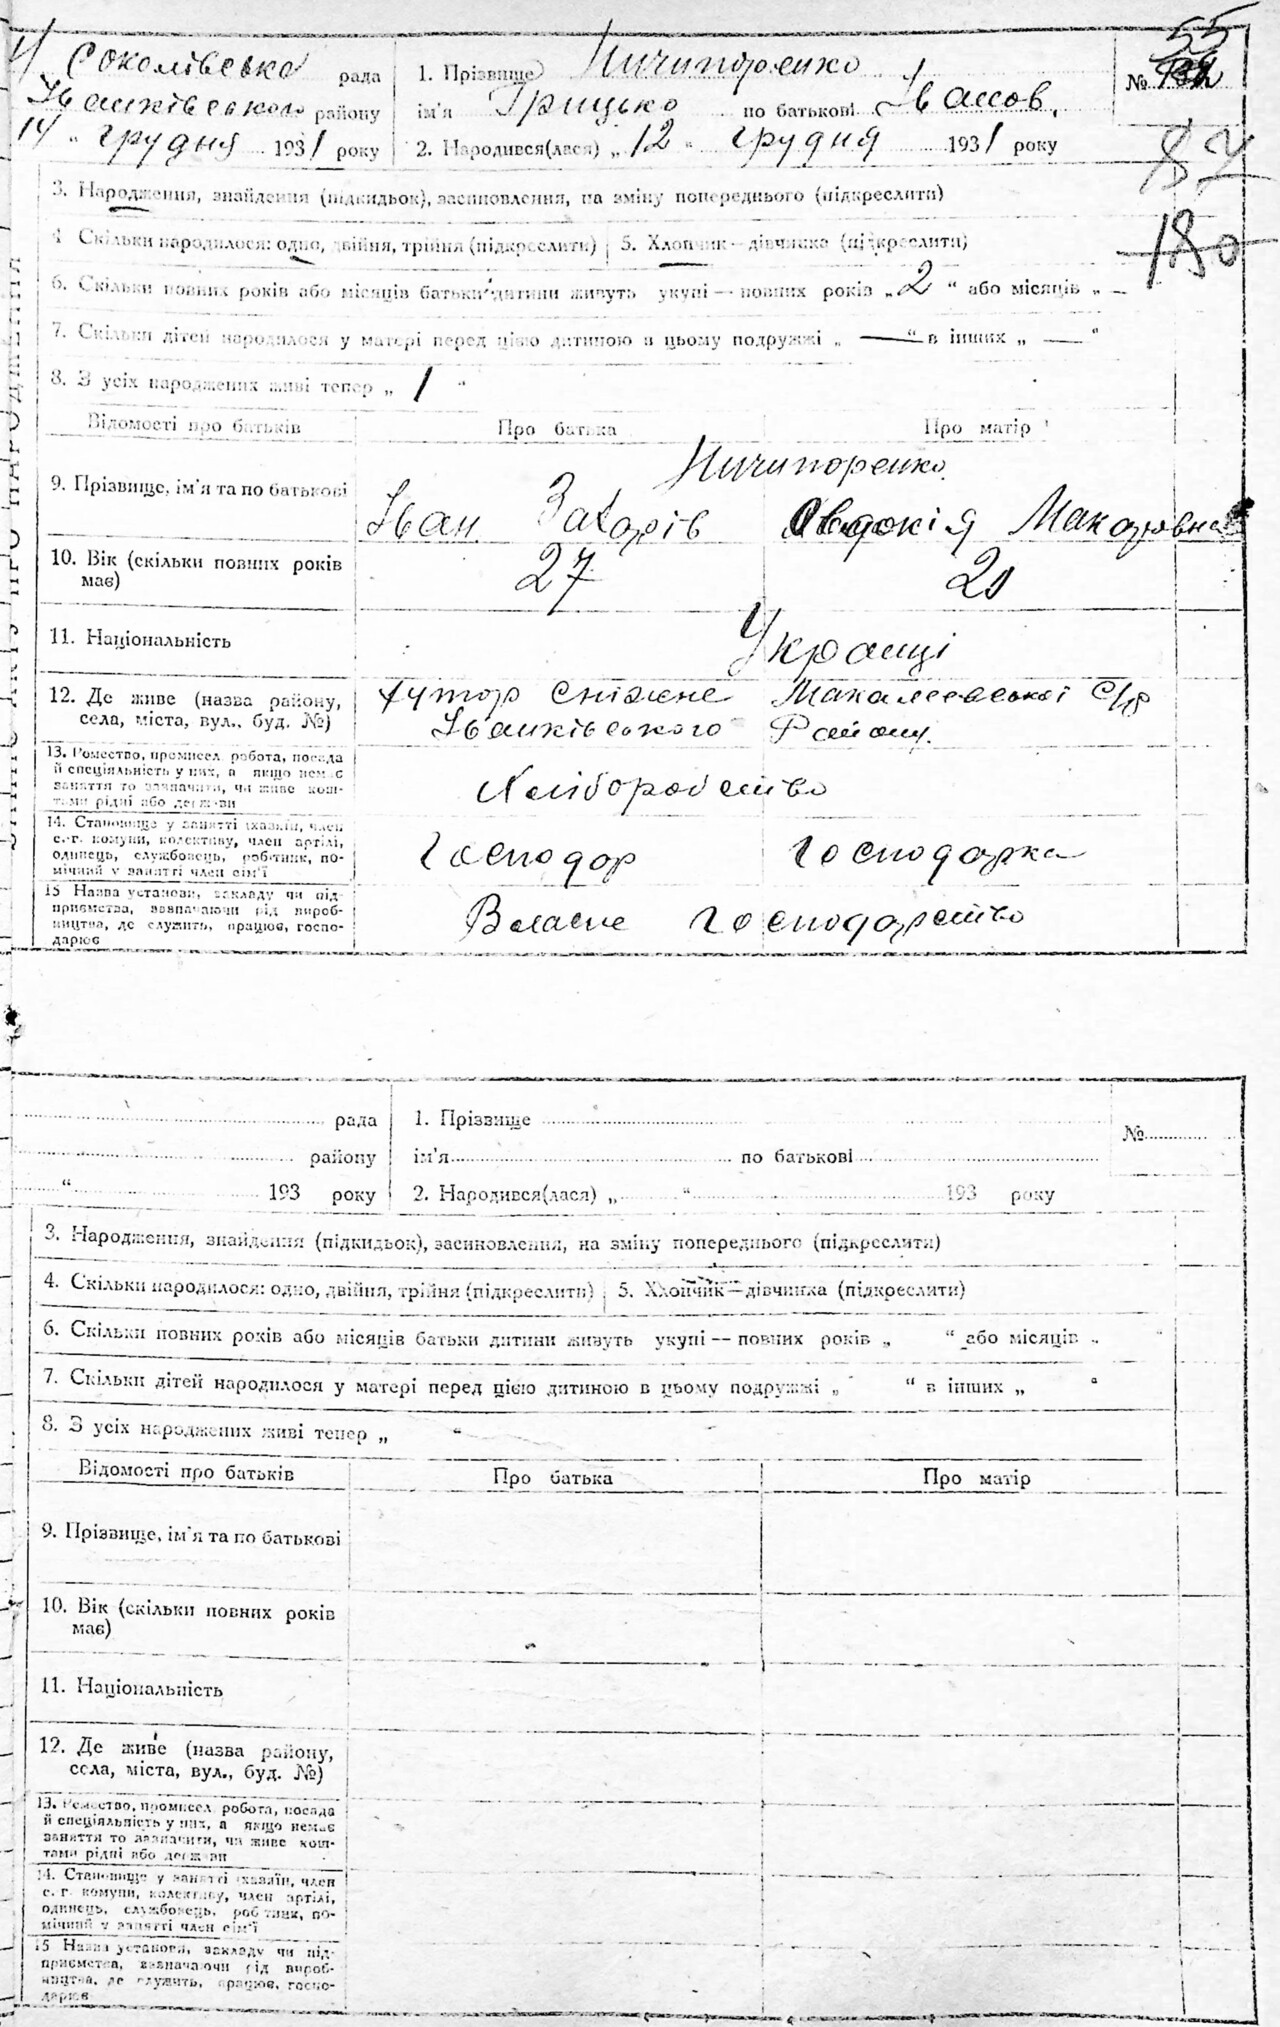 Соколівська рада
Іванківського району
14 " грудня 1931 року
1. Прізвище Ничипоренко
ім'я Грицько по батькові Іванов.
2. Народився(лася) „ 12 " грудня 1931 року
№
55
87
180
3. Народження, знайдення (підкидьок), засиновлення, на зміну попереднього (підкреслити)
4 Скільки народилося: одно, двійня, трійня (підкреслити) 5. Хлопчик — дівчинка (підкреслити)
6. Скільки повних років або місяців батьки дитини живуть укупі — повних років „ 2 " або місяців „ —
7. Скільки дітей народилося у матері перед цією дитиною в цьому подружжі „ — " в інших „ — "
8. З усіх народжених живі тепер „ 1 "
Відомості про батьків Про батька Про матір
Ничипоренко
9. Прізвище, ім'я та по батькові
Іван Захарів Євдокія Макаровна
10. Вік (скільки повних років має) 27 20
11. Національність Українці
12. Де живе (назва району, села, міста, вул., буд. №)
хутор Сніжне с/р
Іванківського Району.
13. Ремество, промисел робота, посада
й спеціяльність у них, а якщо немає
заняття то зазначити, чи живе кош-
тами рідні або держави
Хліборобство
14. Становище у занятті (хазяїн, член
с.-г. комуни, колективу, член артілі,
одинець, службовець, робітник, по-
мічний у занятті член сім'ї
Господар Господарка
15 Назва установи, закладу чи під-
приємства, зазначаючи рід вироб-
ництва, де служить, працює, госпо-
дарює
Власне господарство
рада
району
" 193 року
1. Прізвище
ім'я по батькові
2. Народився(лася) „ " 193 року
№
3. Народження, знайдення (підкидьок), засиновлення, на зміну попереднього (підкреслити)
4. Скільки народилося: одно, двійня, трійня (підкреслити) 5. Хлопчик—дівчинка (підкреслити)
6. Скільки повних років або місяців батьки дитини живуть укупі — повних років „ " або місяців „ "
7. Скільки дітей народилося у матері перед цією дитиною в цьому подружжі „ " в інших „ "
8. З усіх народжених живі тепер „ "
Відомості про батьків Про батька Про матір
9. Прізвище, ім'я та по батькові
10. Вік (скільки повних років
має)
11. Національність
12. Де живе (назва району,
села, міста, вул., буд. №)
13. Ремество, промисел робота, посада
й спеціяльність у них, а якщо немає
заняття то зазначити, чи живе кош-
тами рідні або держави
14. Становище у занятті (хазяїн, член
с. г. комуни, колективу, член артілі,
одинець, службовець, робітник, по-
мічний у занятті член сім'ї
15 Назва установи, закладу чи під-
приємства, зазначаючи рід вироб-
ництва, де служить, працює, госпо-
дарює